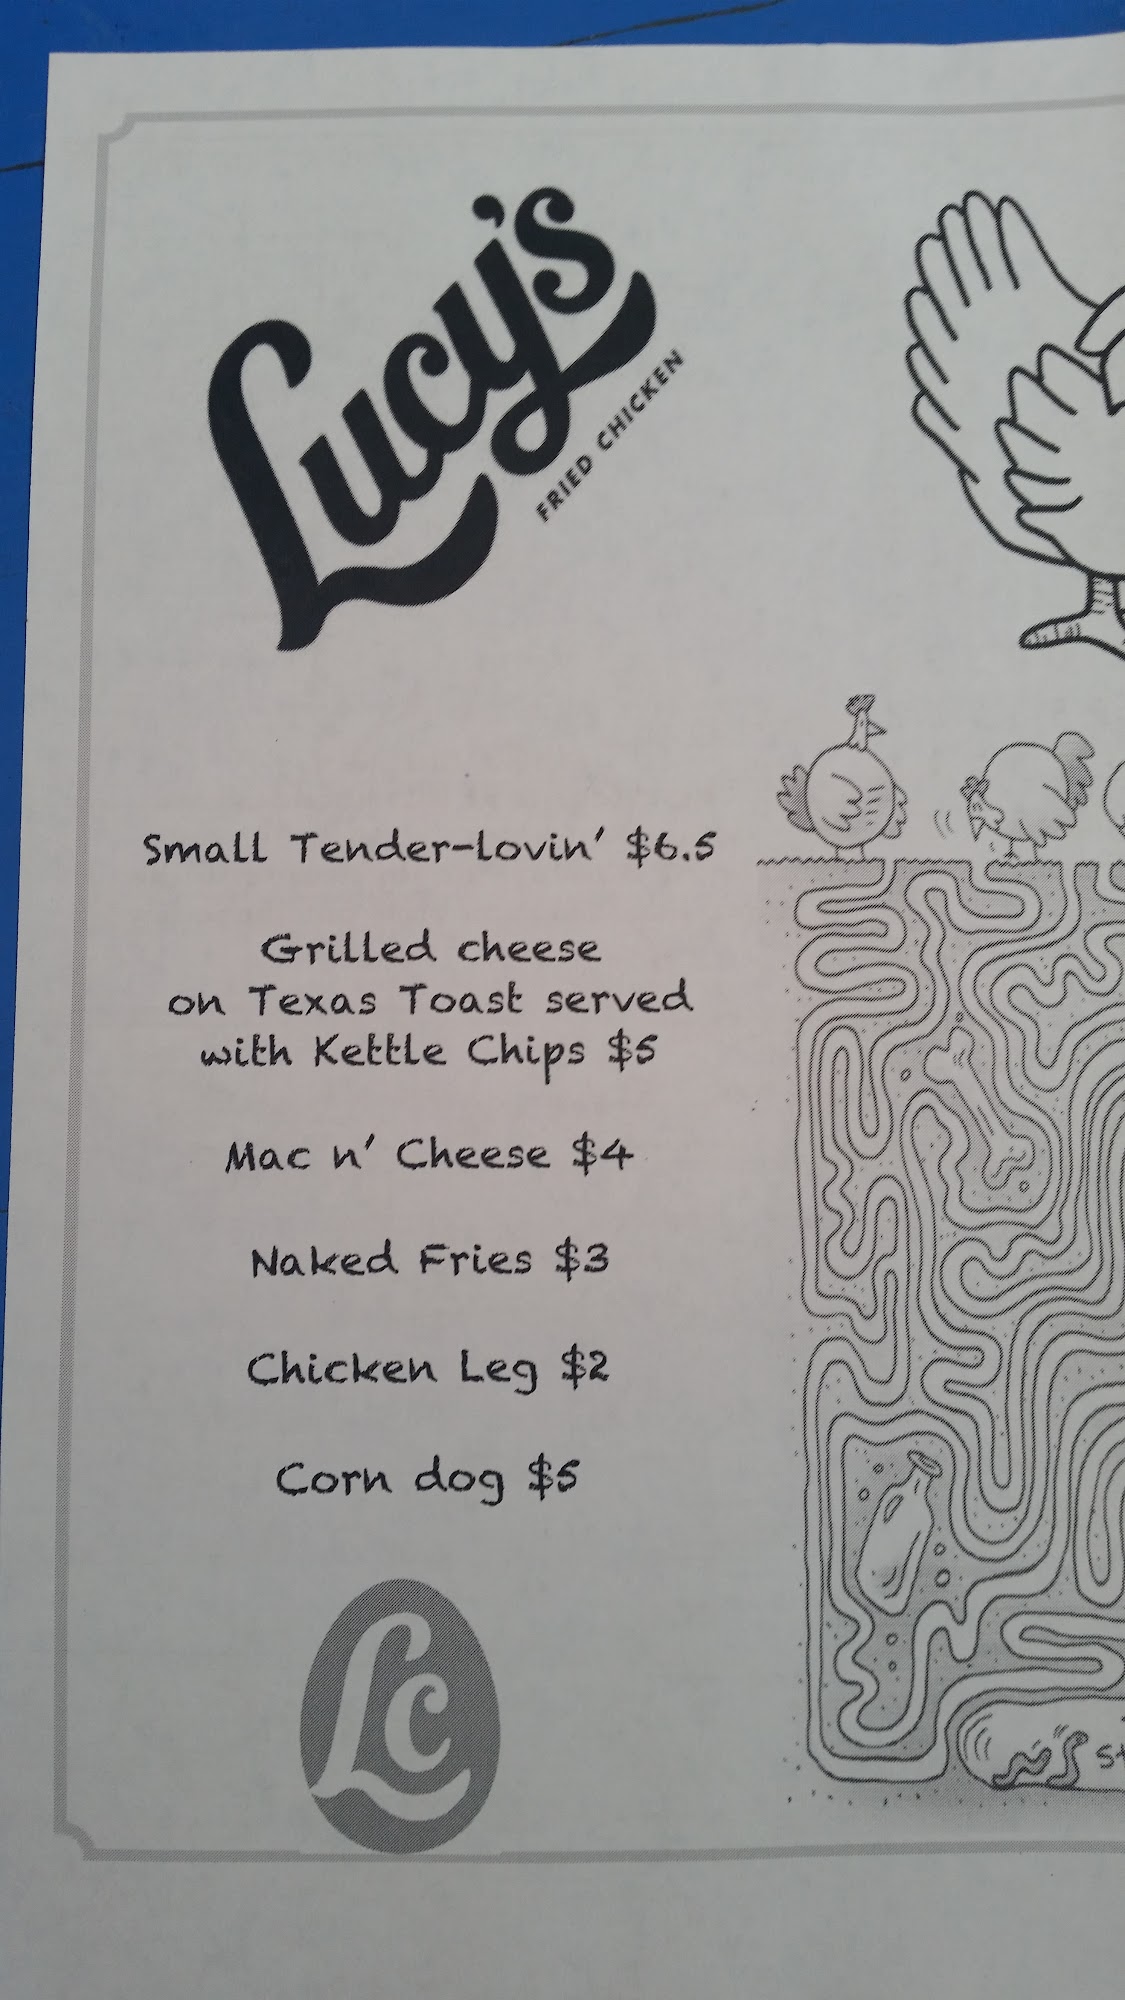 Lucy's
FRIED CHICKEN
Small Tender-lovin' $6.5
Grilled cheese
on Texas Toast served
with Kettle Chips $5
Mac n' Cheese $4
Naked Fries $3
Chicken Leg $2
Corn dog $5
LC